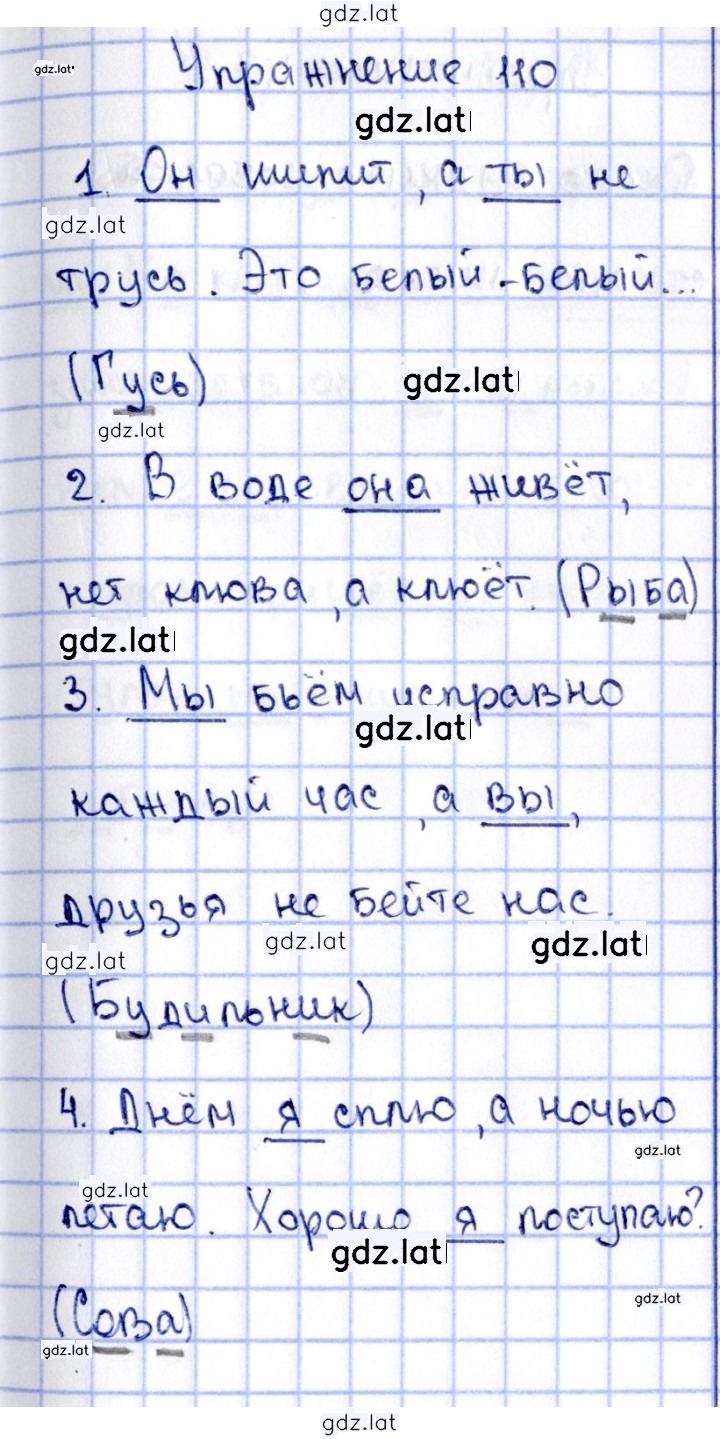 gdz.lat
gdz.lat
Упражнение 110
gdz.lat
1. Он шипит, а ты не
gdz.lat
трусь. Это белый-белый...
(Гусь)
gdz.lat
gdz.lat
2. В воде она живёт,
нет клюва, а клюёт. (Рыба)
gdz.lat
3. Мы бьём исправно
gdz.lat
каждый час, а вы,
друзья не бейте нас.
gdz.lat
gdz.lat
gdz.lat
(Будильник)
4. Днём я сплю, а ночью
gdz.lat
gdz.lat
летаю. Хорошо я поступаю?
gdz.lat
gdz.lat
(Сова)
gdz.lat
gdz.lat